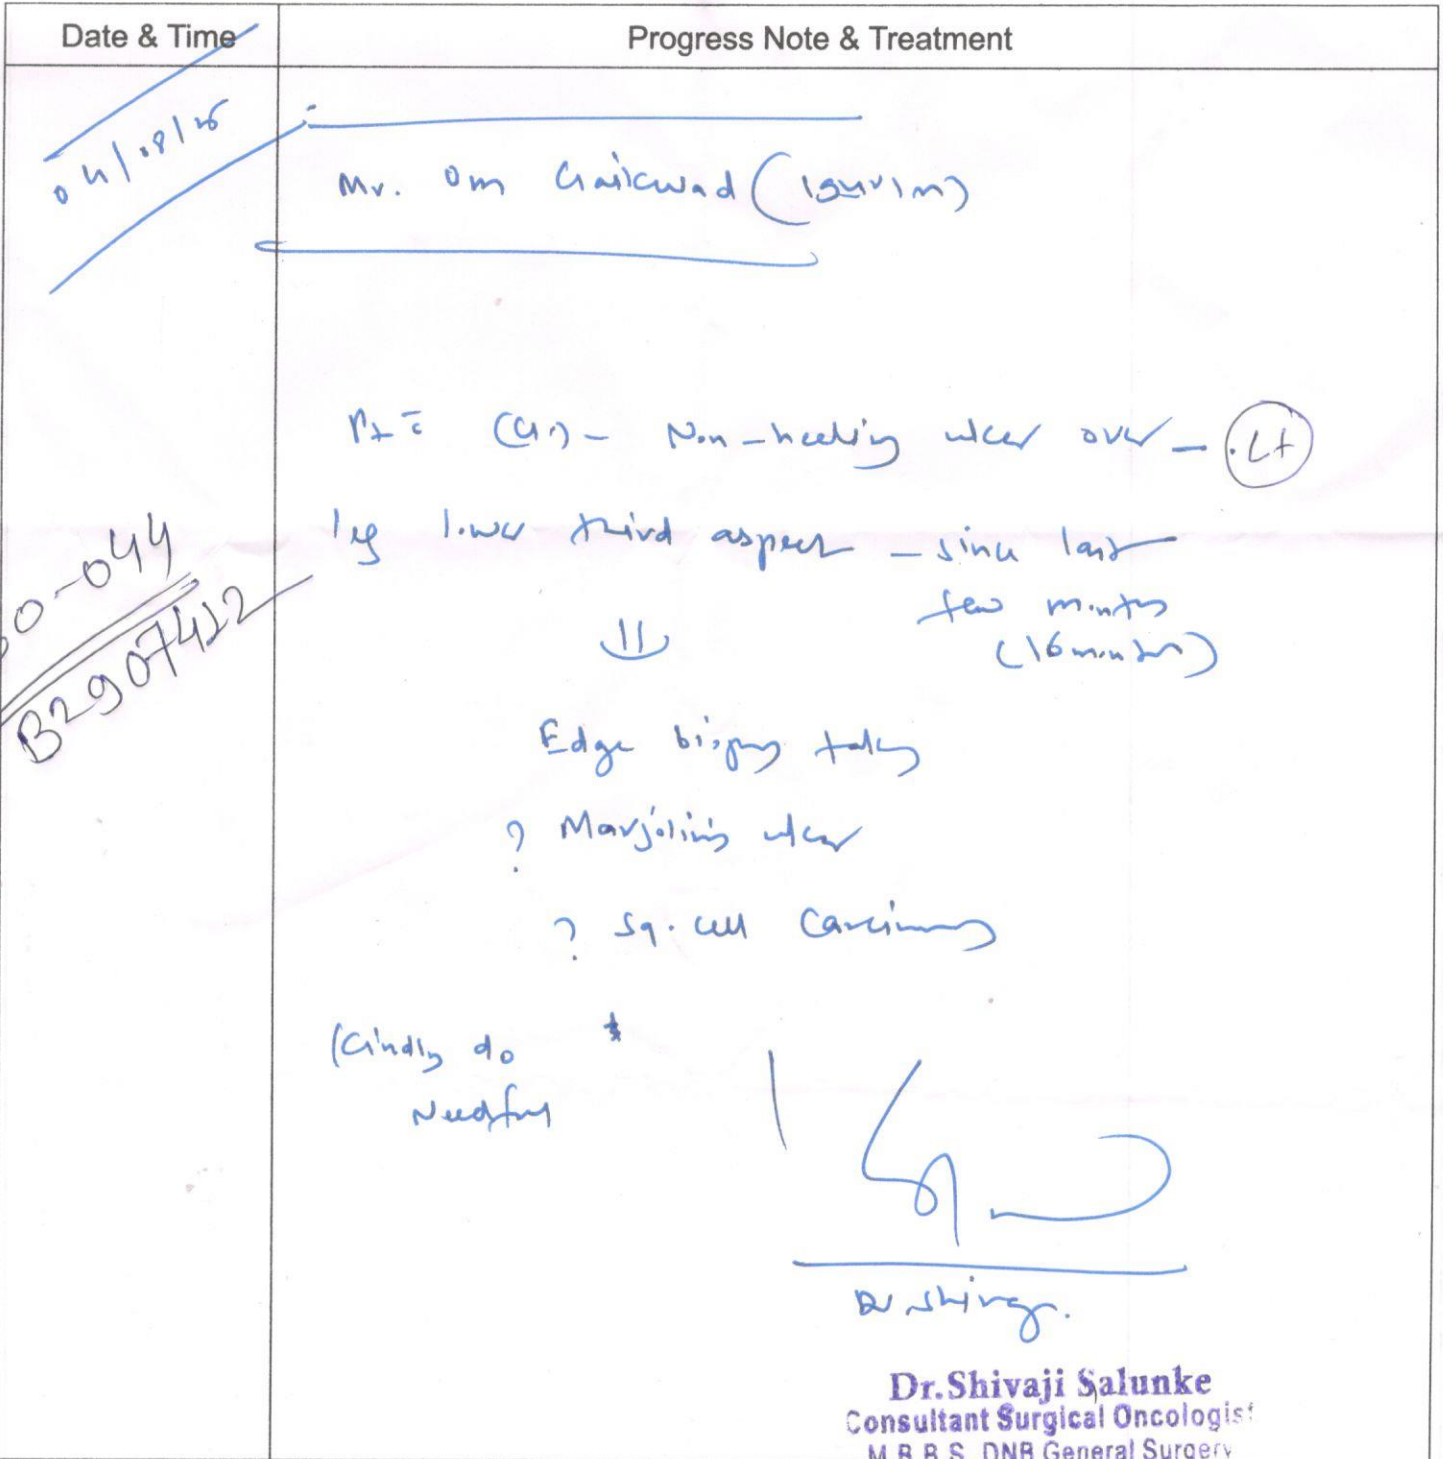 Date & Time
Progress Note & Treatment
04/08/25
Mr. Om Gaikwad (
Pt c̄ - Non-healing ulcer over - Lt
leg lower third aspect - since last
few months
(16 months)
30-044
B2907412
Edge biopsy taken
? Marjolin's ulcer
? Sq. cell carcinoma
Kindly do
Needful
Dr Shivaji
Dr.Shivaji Salunke
Consultant Surgical Oncologist
M.B.B.S. DNB General Surgery